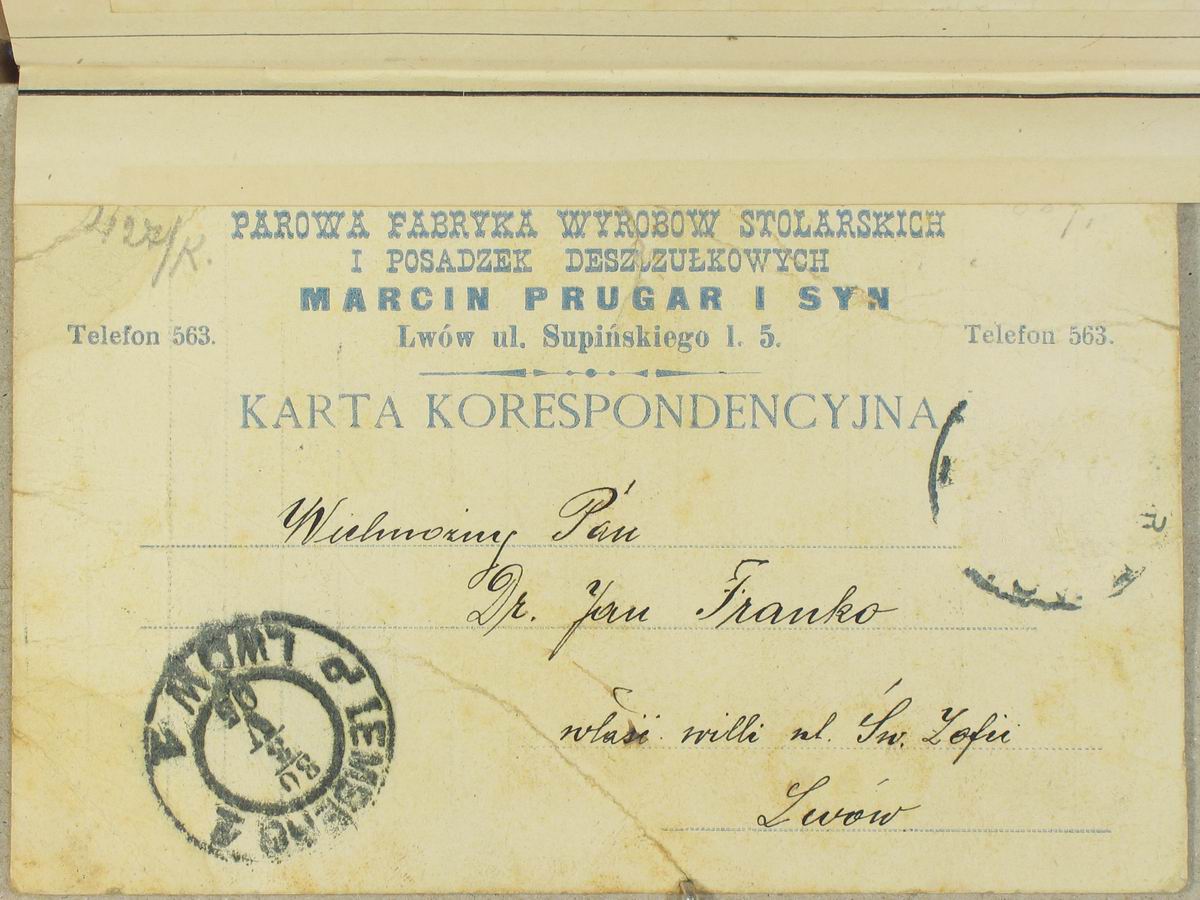 427/K.
PAROWA FABRYKA WYROBOW STOLARSKICH
I POSADZEK DESZCZUŁKOWYCH
MARCIN PRUGAR I SYN
Telefon 563. Lwów ul. Supińskiego l. 5. Telefon 563.
KARTA KORESPONDENCYJNA
Wielmożny Pan
Dr. Jan Franko
właśc. willi ul. Św. Zofii
Lwów
LEMBERG 2 LWÓW 2